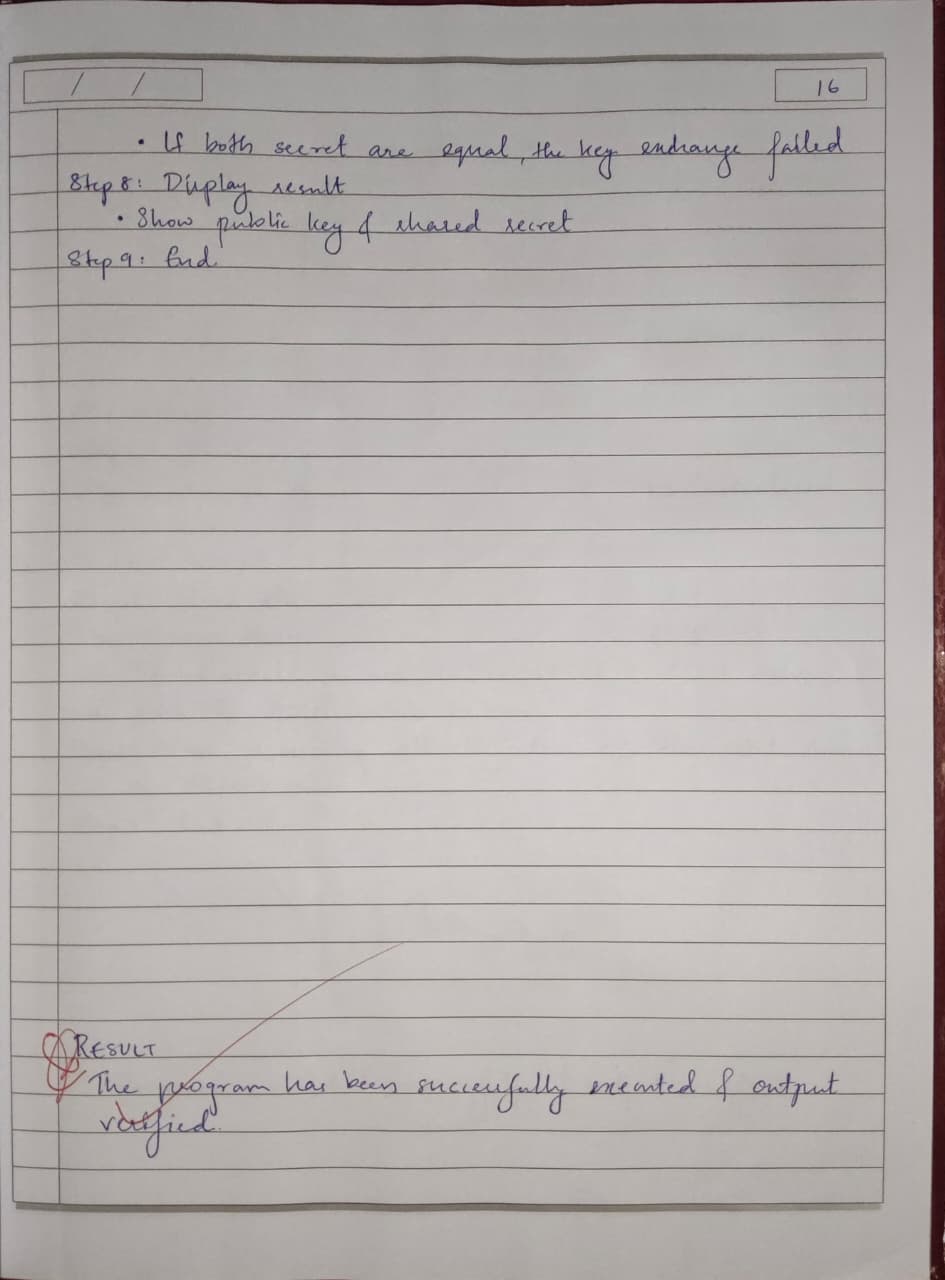 / /
16
• If both secret are equal, the key exchange failed
Step 8: Display result
• Show public key & shared secret
Step 9: End.
RESULT
The program has been successfully executed & output
verified.